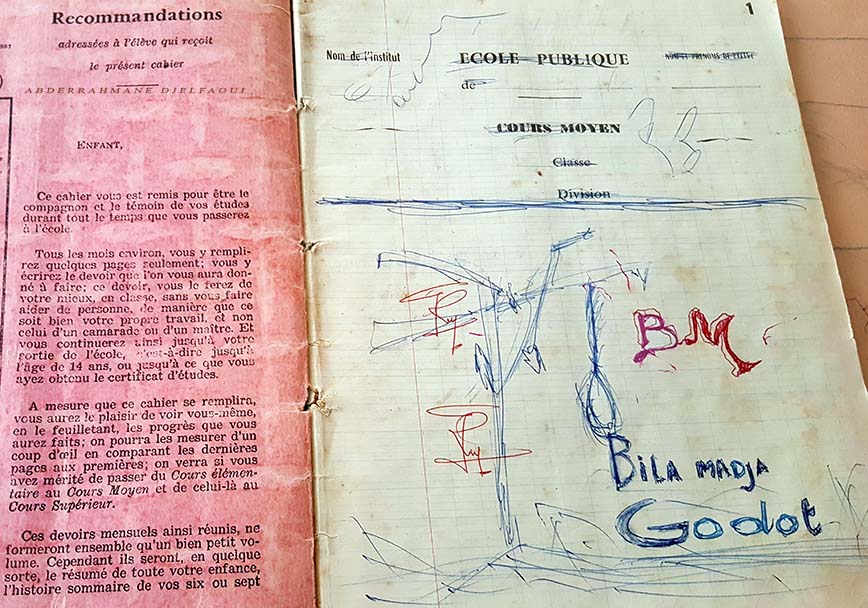 Recommandations
adressées à l'élève qui reçoit
le présent cahier
ABDERRAHMANE DJELFAOUI
ENFANT,
Ce cahier vous est remis pour être le
compagnon et le témoin de vos études
durant tout le temps que vous passerez
à l'école.
Tous les mois environ, vous y rempli-
rez quelques pages seulement; vous y
écrirez le devoir que l'on vous aura don-
né à faire; ce devoir, vous le ferez de
votre mieux, en classe, sans vous faire
aider de personne, de manière que ce
soit bien votre propre travail, et non
celui d'un camarade ou d'un maître. Et
vous continuerez ainsi jusqu'à votre
sortie de l'école, c'est-à-dire jusqu'à
l'âge de 14 ans, ou jusqu'à ce que vous
ayez obtenu le certificat d'études.
A mesure que ce cahier se remplira,
vous aurez le plaisir de voir vous-même,
en le feuilletant, les progrès que vous
aurez faits; on pourra les mesurer d'un
coup d'œil en comparant les dernières
pages aux premières; on verra si vous
avez mérité de passer du Cours élémen-
taire au Cours Moyen et de celui-là au
Cours Supérieur.
Ces devoirs mensuels ainsi réunis, ne
formeront ensemble qu'un bien petit vo-
lume. Cependant ils seront, en quelque
sorte, le résumé de toute votre enfance,
l'histoire sommaire de vos six ou sept
1
Nom de l'institut
ECOLE PUBLIQUE
NOM ET PRÉNOMS DE L'ÉLÈVE
de
COURS MOYEN
Classe
Division
BM
BiLA MADJA
Godot